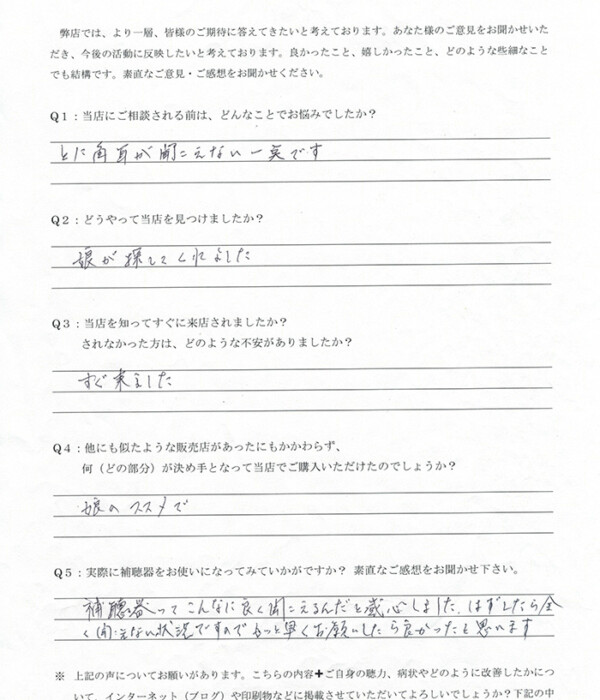 弊店では、より一層、皆様のご期待に答えてきたいと考えております。あなた様のご意見をお聞かせいた
だき、今後の活動に反映したいと考えております。良かったこと、嬉しかったこと、どのような些細なこと
でも結構です。素直なご意見・ご感想をお聞かせください。
Q1：当店にご相談される前は、どんなことでお悩みでしたか？
とに角耳が聞こえない一点です
Q2：どうやって当店を見つけましたか？
娘が探してくれました
Q3：当店を知ってすぐに来店されましたか？
されなかった方は、どのような不安がありましたか？
すぐ来ました
Q4：他にも似たような販売店があったにもかかわらず、
何（どの部分）が決め手となって当店でご購入いただけたのでしょうか？
娘のススメで
Q5：実際に補聴器をお使いになってみていかがですか？ 素直なご感想をお聞かせ下さい。
補聴器ってこんなに良く聞こえるんだと感心しました、はずしたら全
く聞こえない状況ですのでもっと早くお願いしたら良かったと思います
※ 上記の声についてお願いがあります。こちらの内容＋ご自身の聴力、病状やどのように改善したかにつ
いて、インターネット（ブログ）や印刷物などに掲載させていただいてよろしいでしょうか？下記の中